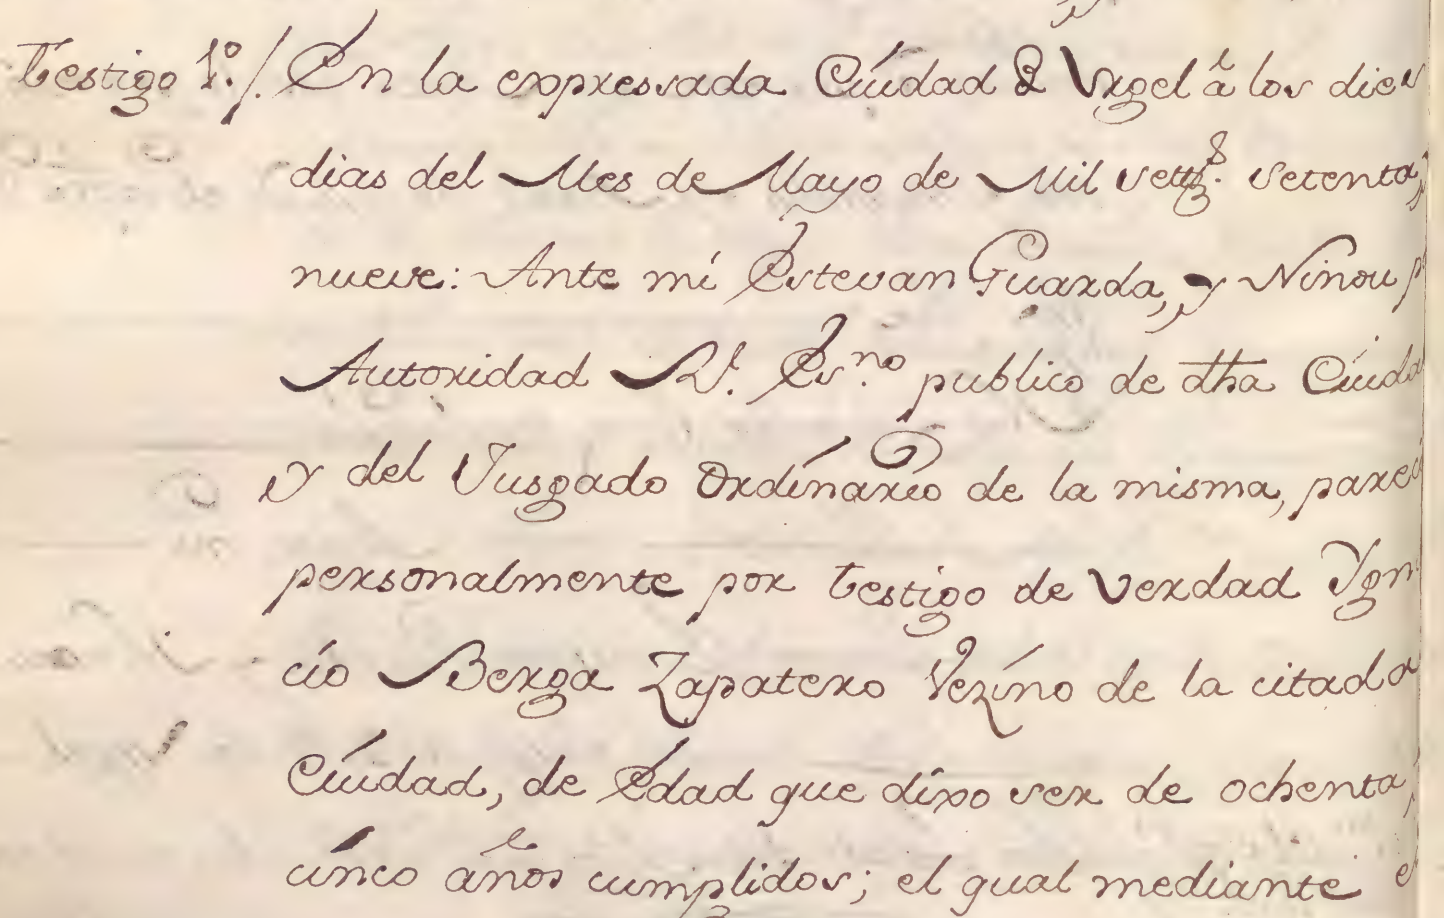 Testigo 1º./. En la expressada Ciudad de Vrgel â los dies
dias del Mes de Mayo de Mil setts. setenta, y
nueve: Ante mi Estevan Guarda, y Ninou p
Autoridad Rl. Esno. publico de dha Ciuda
y del Jusgado Ordinario de la misma, pareci
personalmente por testigo de verdad Ygn
cio Berga Zapatero Vezino de la citada
Ciudad, de Edad que dixo ser de ochenta,
cinco años cumplidos; el qual mediante e